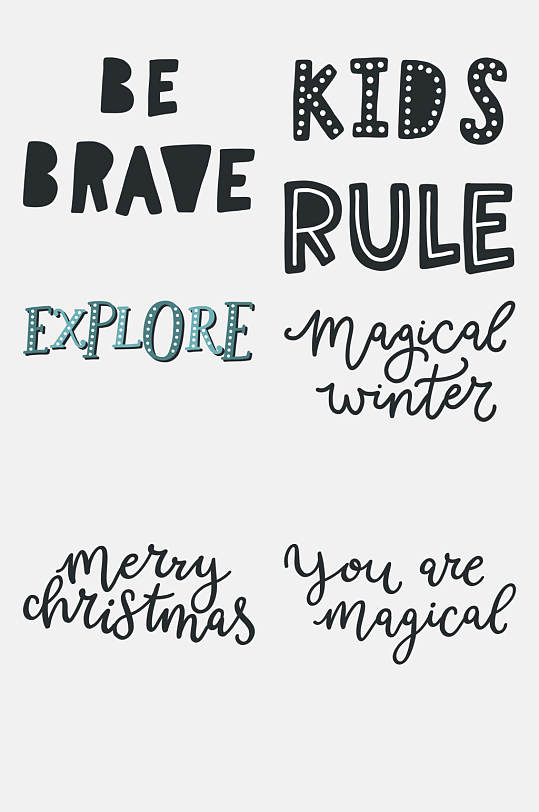 BE
BRAVE
KIDS
RULE
EXPLORE
Magical
winter
merry
christmas
You are
magical